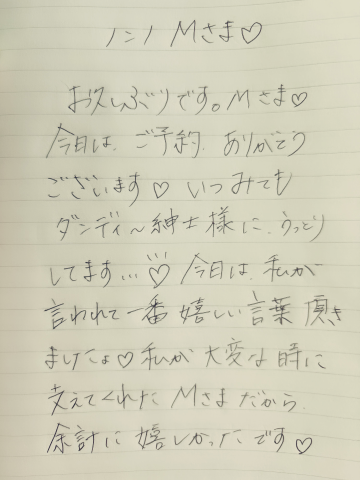 ノンノ Mさま♡
お久しぶりです。Mさま♡
今日は、ご予約、ありがとう
ございます♡ いつみても
ダンディ〜紳士様に、うっとり
してます…♡ 今日は、私が
言われて一番嬉しい言葉頂き
ましたょ♡ 私が大変な時に
支えてくれた Mさまだから
余計に嬉しかったです♡